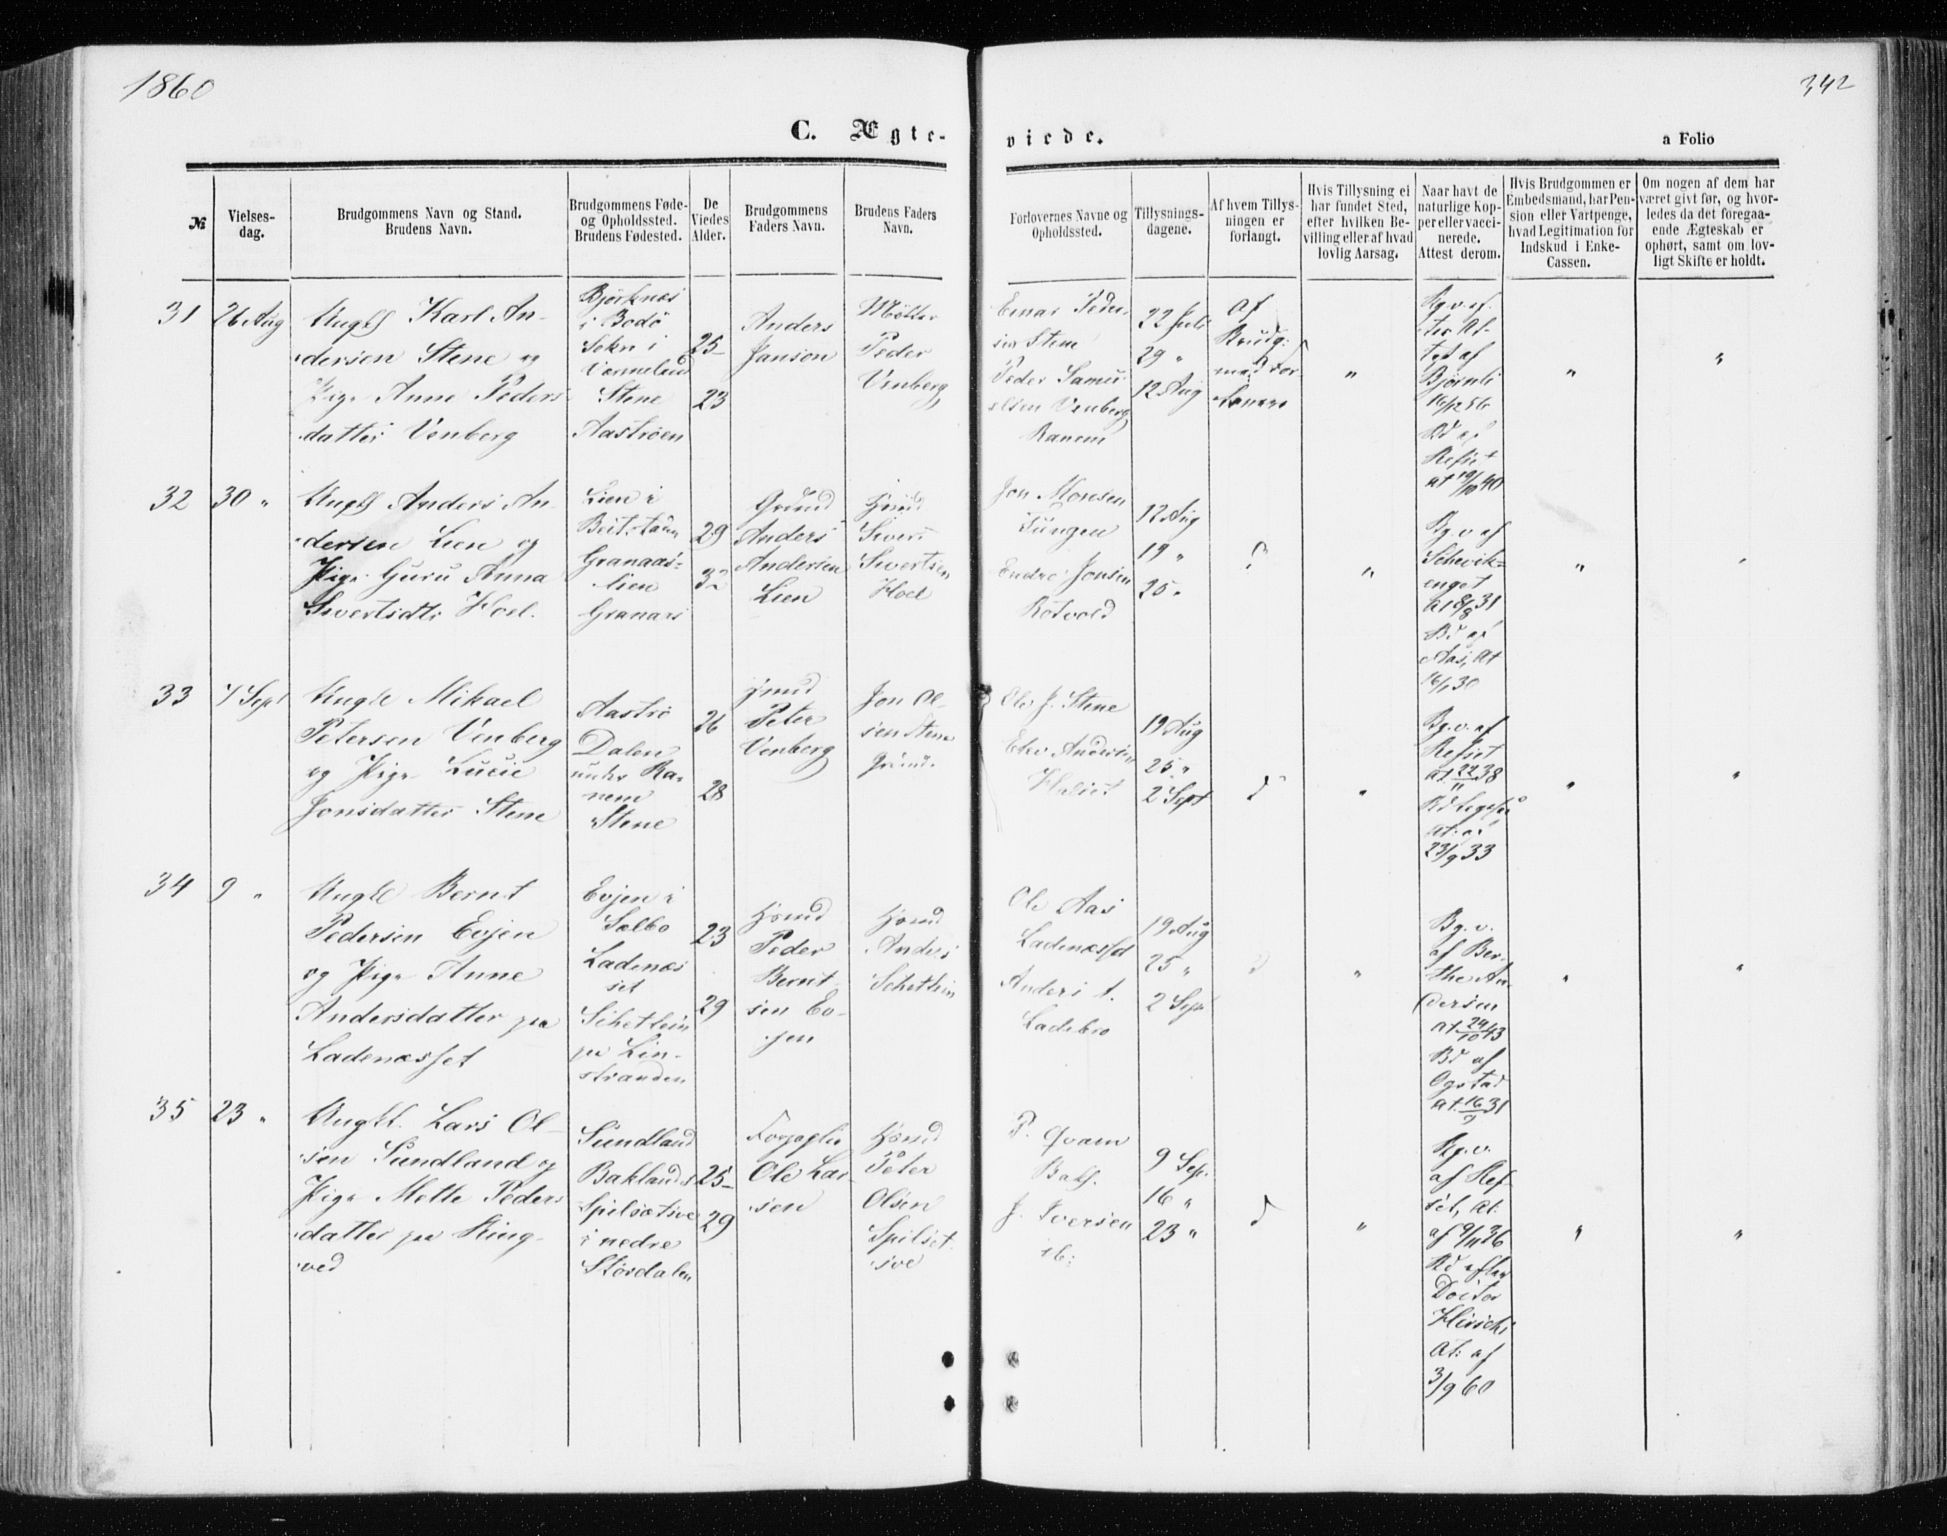 1860
342
C. Ægte-
viede.
a Folio
№
Vielses-
dag.
Brudgommens Navn og Stand.
Brudens Navn.
Brudgommens Føde-
og Opholdssted.
Brudens Fødested.
De
Viedes
Alder.
Brudgommens
Faders Navn.
Brudens Faders
Navn.
Forlovernes Navne og
Opholdssted.
Tillysnings-
dagene.
Af hvem Tillys-
ningen er
forlangt.
Hvis Tillysning ei
har fundet Sted,
efter hvilken Be-
villing eller af hvad
lovlig Aarsag.
Naar havt de
naturlige Kop-
per eller vacci-
nerede.
Attest derom.
Hvis Brudgommen er
Embedsmand, har Pen-
sion eller Vartpenge,
hvad Legitimation for
Indskud i Enke-
Cassen.
Om nogen af dem har
været givt før, og hvor-
ledes da det foregaa-
ende Ægteskab er
ophørt, samt om lov-
ligt Skifte er holdt.
31
26 Aug
Ungk Karl An-
dersen Stene og
Pige Anne Peders
datter Venberg
i Bodö
Sokn i
Stene
Aastrøen
25
23
Anders
Janson
Peder
Venberg
Einar Peder
sen Stene
Peder Samu
elsen Venberg
Ranem
22 Juli
29 "
12 Aug
Af
Brudg:
med For
"
Bg. v. af
Bjørnli
16/12 56
Bd af
at 19/10 40
"
"
32
30 "
Ungk Anders An-
dersen Lien og
Pige Guru Anna
Sivertsdtr Hoel.
Lien i
Beitstaden
Granaas-
lien
29
32
Gbrmd
Anders
Andersen
Lien
Hsmd
Siver
Sivertsen
Hoel
Jon Monsen
Tungen
Endre Jonsen
Rotvold
12 Aug
19 "
25 "
"
Bg. v af
enget
at 8/8 31
Bd af
Aas, At
16/1 30
"
33
7 Sept
Ungk Mikael
Petersen Venberg
og Pige Lucie
Jonsdatter Stene
Aastrø
Dalen
under Ra-
nem
Stene
26
28
Peter
Venberg
Jon Ol-
sen Stene
Gbrmd.
Ole J. Stene
19 Aug
25 "
2 Sept
"
Bg. v. af
at 22/11 38
23/9 33
"
"
34
9 "
Ungk Bernt
Pedersen Evjen
og Pige Anne
Andersdatter paa
Ladenæsset
Evjen i
Selbo
Ladenæs
set
paa Lin-
stranden
23
29
Hsmd
Peder
Bernt
sen Ev-
jen
Hsmd
Anders
Ole Aas
Ladenæsset
Anders A.
Ladebro
19 Aug
25 "
2 Sept
"
Bg. v.
af Ber-
the An
dersen
At 29/10 43
Bd af
Ogstad
at 16/9 31
"
"
35
23 "
Ungk. Lars Ol-
sen Sundland og
Pige Mette Peders
datter paa Ring-
ved
Sundland
Baklandet
i nedre
Størdalen
25
29
Ole Lar
sen
Hsmd
Peter
Olsen
P. Qvam
Bakl.
J. Iversen
ib:
9 Sep.
16 "
23 "
"
Bg. v.
set, At.
af 9/11 36
Bd efter
Doctor
At: af
3/9 60
"
"